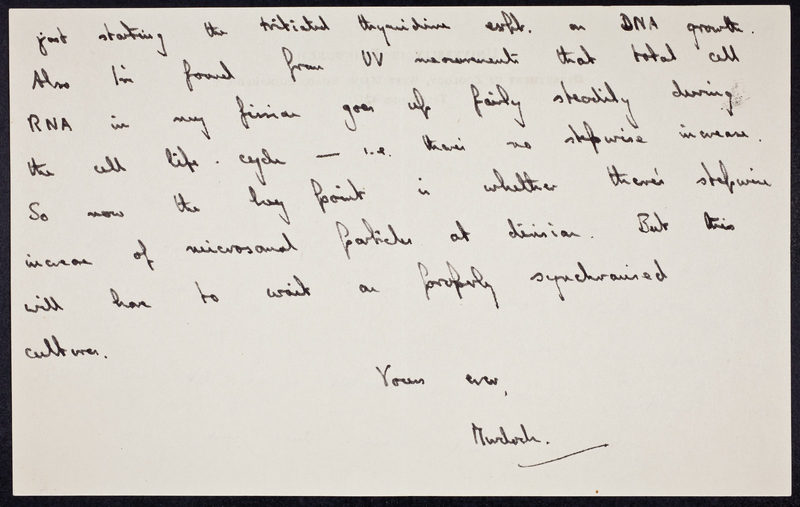 just starting the tritiated thymidine expt. on DNA growth.
Also I've found from UV measurements that total cell
RNA in my fission goes up fairly steadily during
the cell life-cycle — i.e. there's no stepwise increase.
So now the key point is whether there's stepwise
increase of microsomal particles at division. But this
will have to wait on properly synchronised
cultures.
Yours ever,
Murdoch.